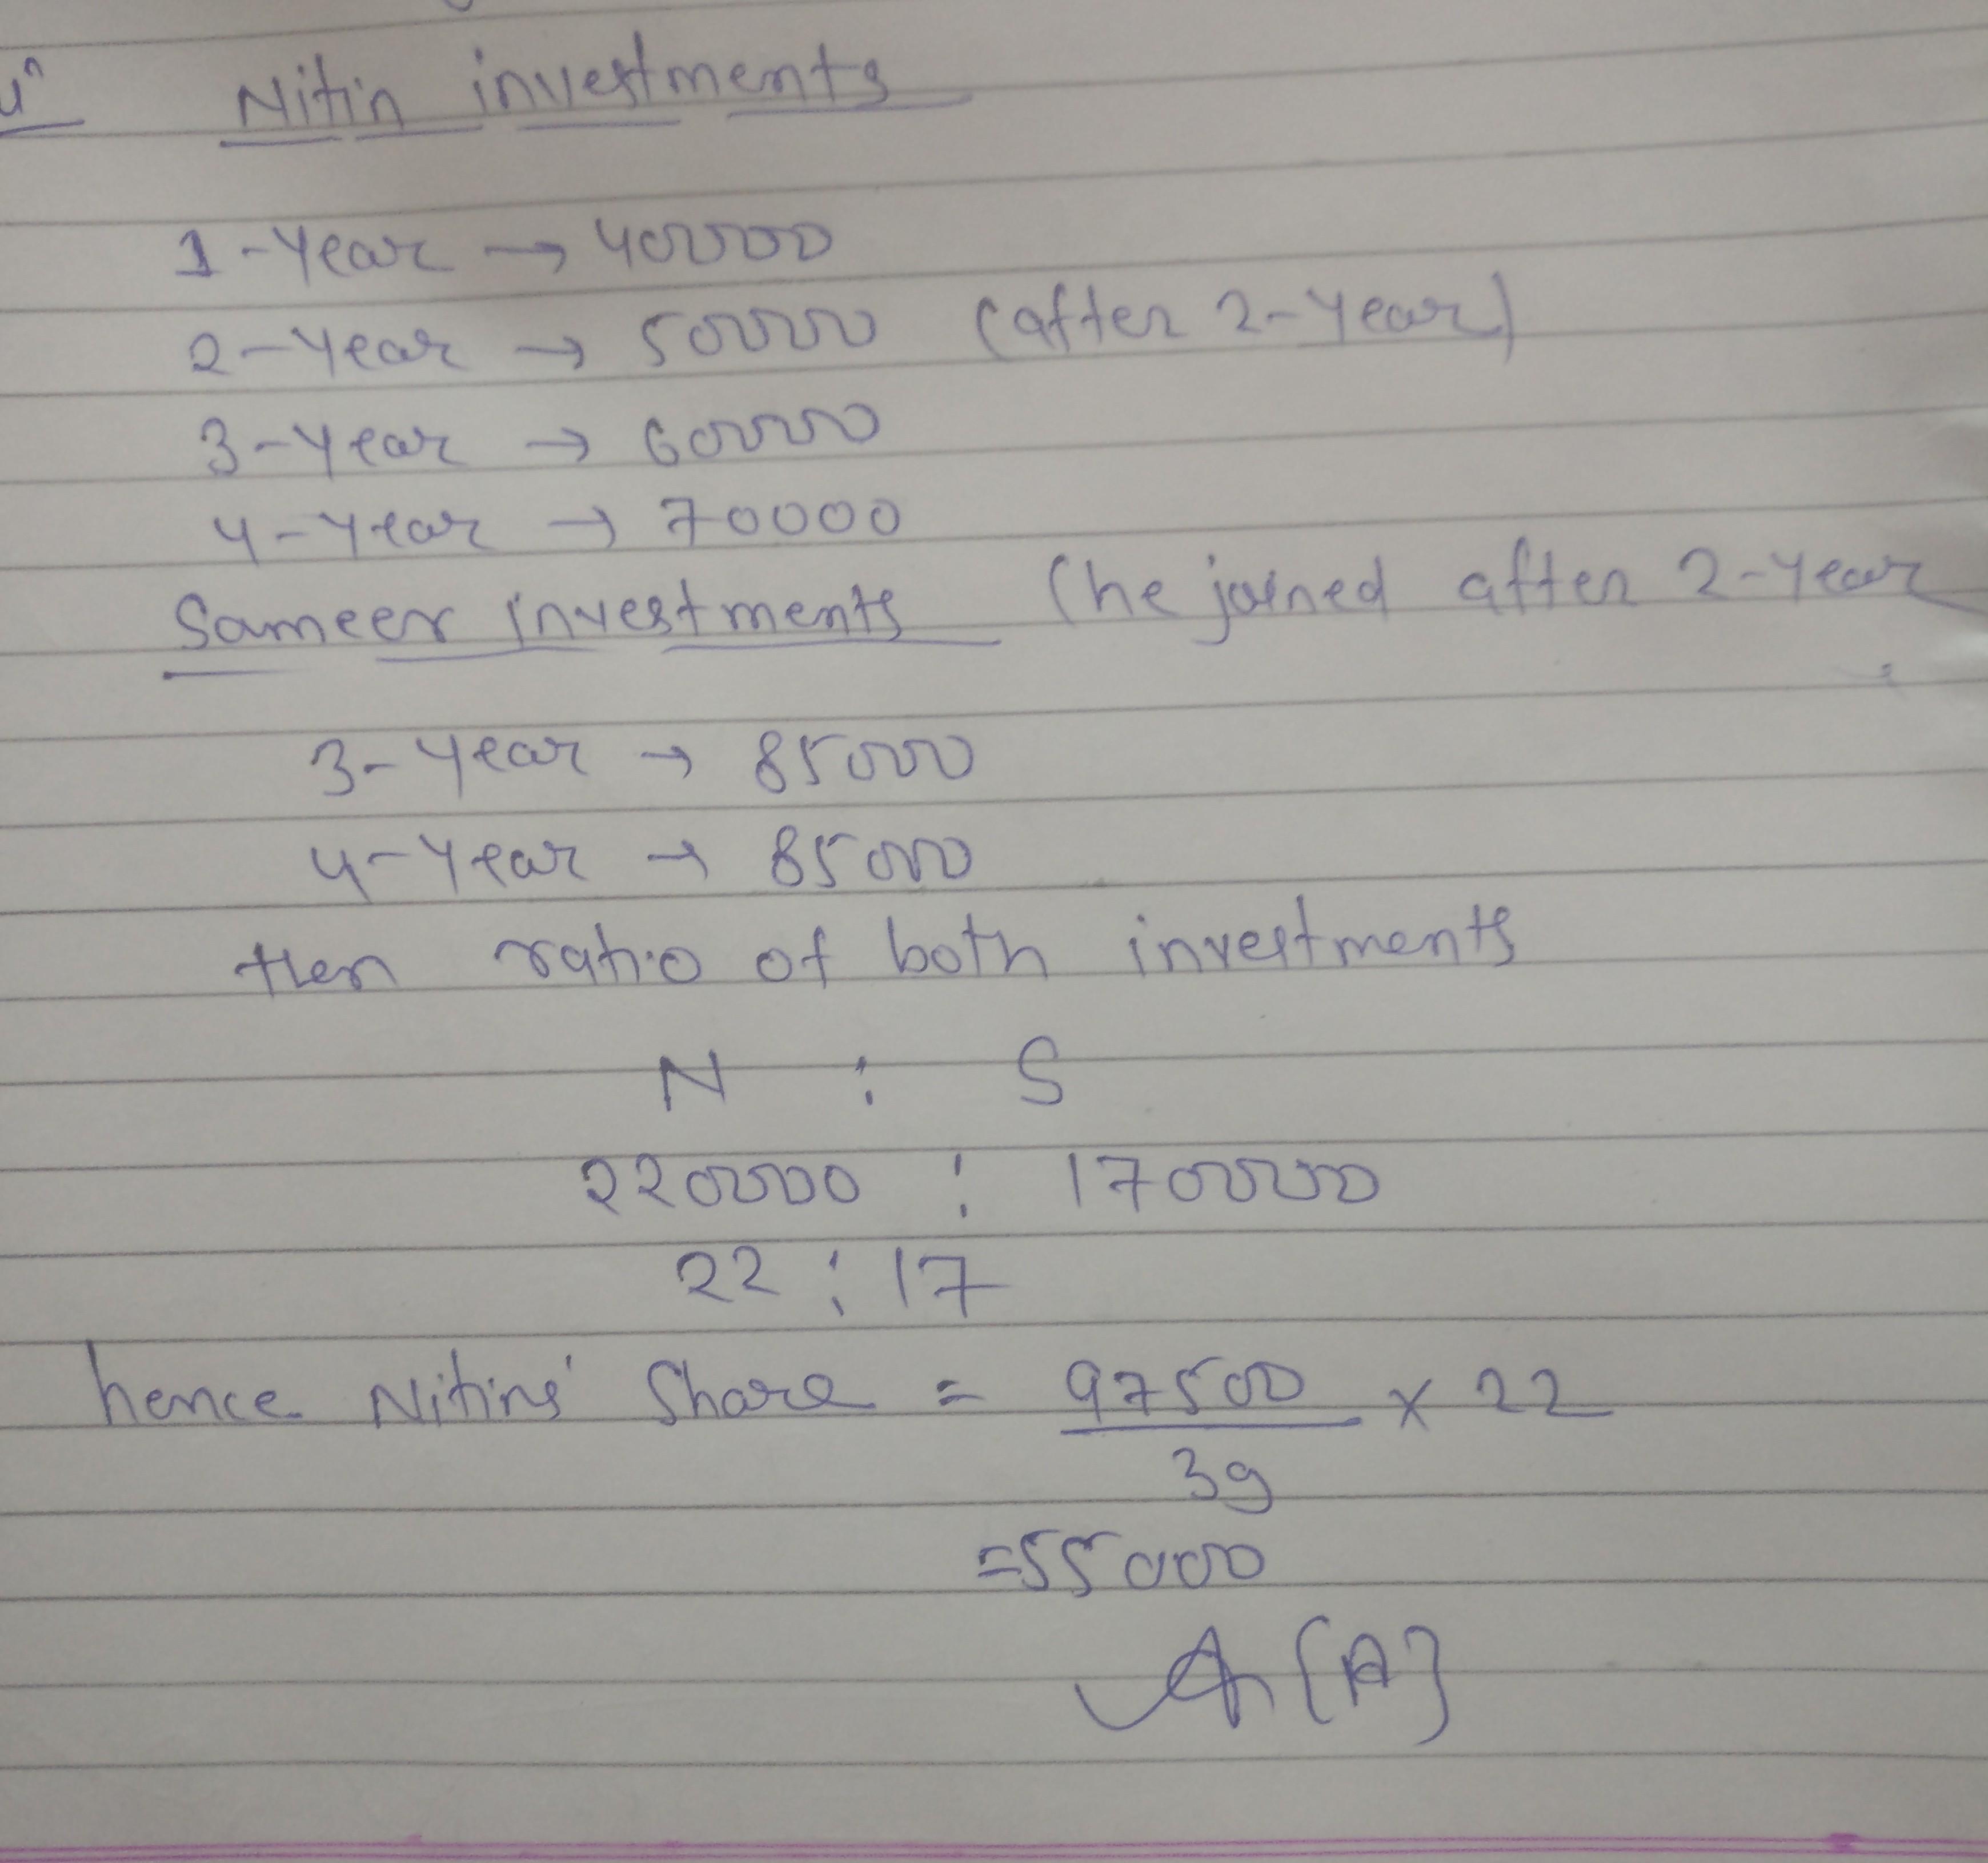 Nitin investments
1-Year → 40000
2-Year → 50000 (after 2-Year)
3-Year → 60000
4-Year → 70000
Sameer investments (he joined after 2-Year
3-Year → 85000
4-Year → 85000
then ratio of both investments
N : S
220000 : 170000
22 : 17
hence Nitins' Share = 97500 × 22
39
=55000
{A}